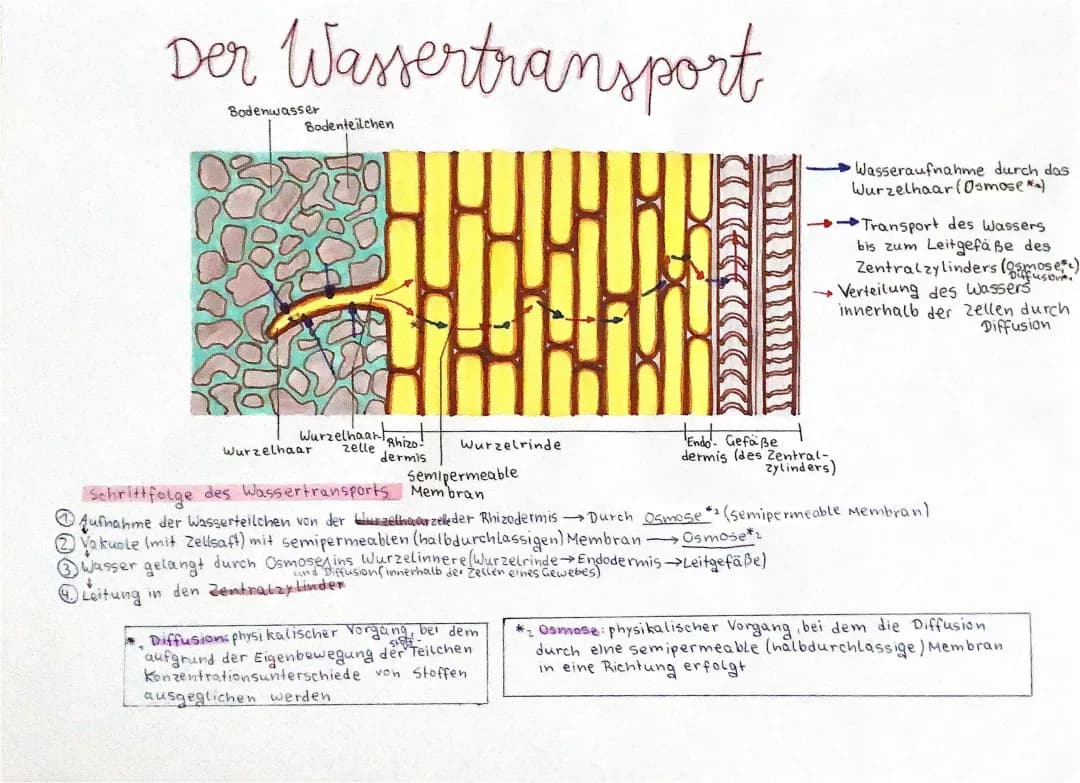 Der Wassertransport
Bodenwasser
Bodenteilchen
Wasseraufnahme durch das
Wurzelhaar (Osmose*2)
Transport des Wassers
bis zum Leitgefäße des
Zentralzylinders (Osmose*2)
Diffusion*1
Verteilung des Wassers
innerhalb der Zellen durch
Diffusion
Wurzelhaar
Wurzelhaar-
zelle
Rhizo-
dermis
Wurzelrinde
Endo-
dermis
Gefäße
(des Zentral-
zylinders)
semipermeable
Membran
Schrittfolge des Wassertransports
1. Aufnahme der Wasserteilchen von der Wurzelhaarzelle der Rhizodermis → Durch Osmose*2 (semipermeable Membran)
2. Vakuole (mit Zellsaft) mit semipermeablen (halbdurchlässigen) Membran → Osmose*2
3. Wasser gelangt durch Osmose, ins Wurzelinnere (Wurzelrinde → Endodermis → Leitgefäße)
und Diffusion (innerhalb der Zellen eines Gewebes)
4. Leitung in den Zentralzylinder
*1 Diffusion: physikalischer Vorgang, bei dem
sich
aufgrund der Eigenbewegung der Teilchen
Konzentrationsunterschiede von Stoffen
ausgeglichen werden
*2 Osmose: physikalischer Vorgang, bei dem die Diffusion
durch eine semipermeable (halbdurchlässige) Membran
in eine Richtung erfolgt